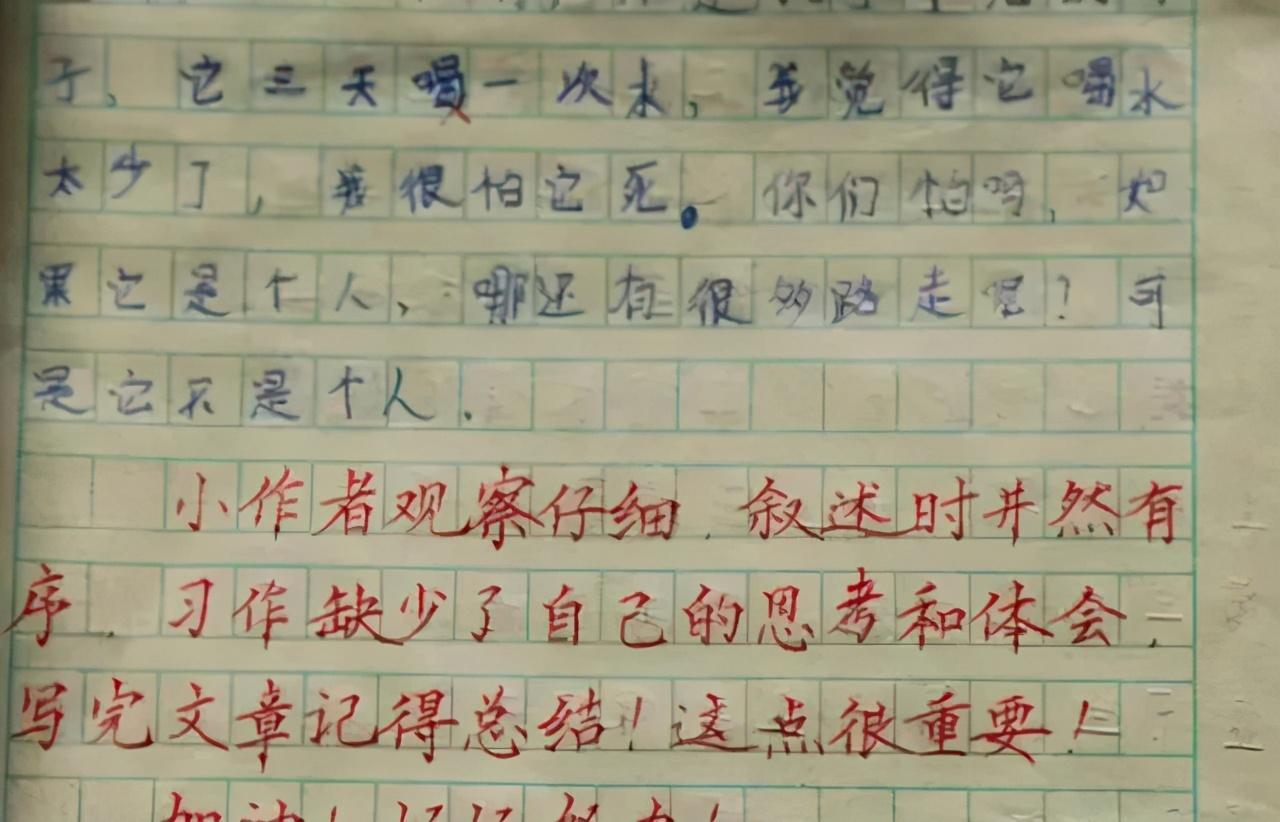 子，它三天喝一次水，我觉得它喝水
太少了，我很怕它死。你们怕吗，如
果它是个人，哪还有很多路走呢？可
是它不是个人．
小作者观察仔细．叙述时井然有
序．习作缺少了自己的思考和体会．
写完文章记得总结！这点很重要！
加油！